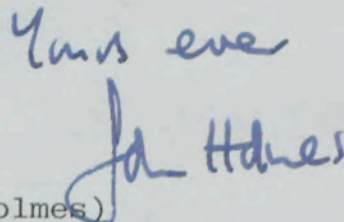 Yours ever
John Holmes
olmes)